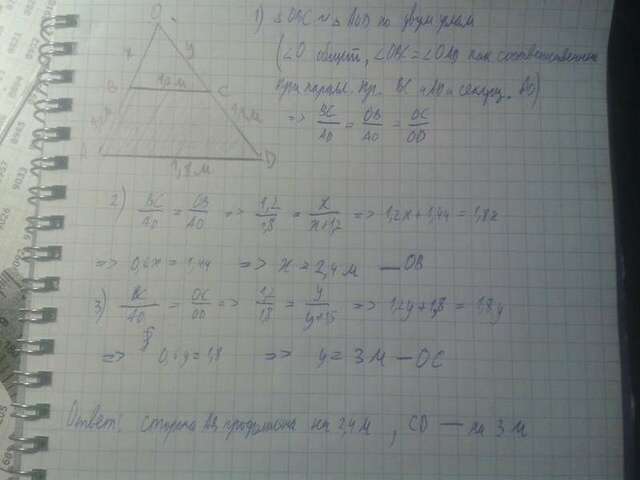 O
x y
B 1,2 м C
A D
1,8 м
1) △OBC ~ △AOD по двум углам
(∠O общий, ∠OBC = ∠OAD как соответственные
при паралл. пр. BC и AD и секущ. AO)
=> BC/AD = OB/AO = OC/OD
2) BC/AD = OB/AO => 1,2/1,8 = x/x+1,2 => 1,2x + 1,44 = 1,8x
=> 0,6x = 1,44 => x = 2,4 м — OB
3) BC/AD = OC/OD => 1,2/1,8 = y/y+1,5 => 1,2y + 1,8 = 1,8y
=> 0,6y = 1,8 => y = 3 м — OC
Ответ: сторона AB продолжена на 2,4 м, CD — на 3 м